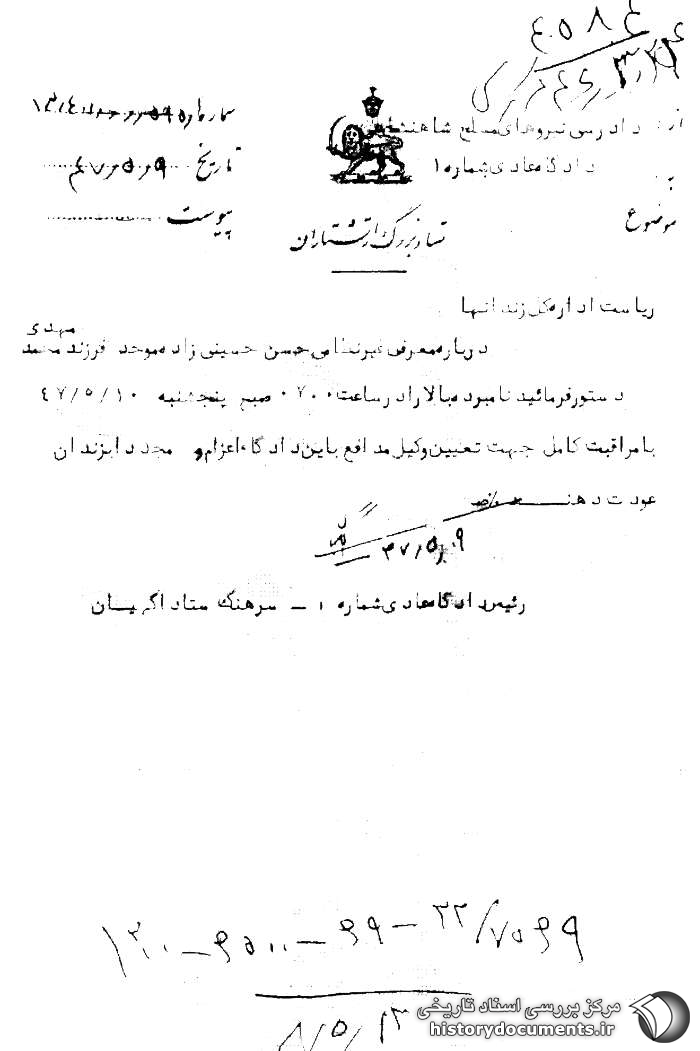 از: دادرسی نیروهای مسلح شاهنشاهی
دادگاه عادی شماره ۱
به
موضوع
شماره
تاریخ ۴۷/۵/۹
پیوست
ستاد بزرگ ارتشتاران
ریاست اداره کل زندانها
درباره معرفی غیرنظامی حسن حسینی زاده موحد فرزند محمد مهدی
دستور فرمائید نامبرده بالا را در ساعت ۰۷۰۰ صبح پنجشنبه ۴۷/۵/۱۰
با مراقبت کامل جهت تعیین وکیل مدافع باین دادگاه اعزام و مجددا بزندان
عودت دهند
۴۷/۵/۰۹
رئیس دادگاه عادی شماره ۱ - سرهنگ ستاد اگهیان
مرکز بررسی اسناد تاریخی
historydocuments.ir